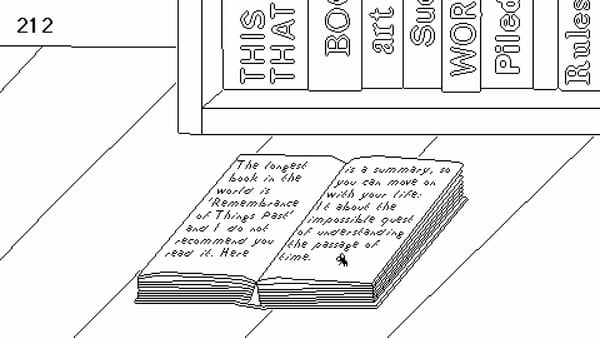 212
THIS
THAT
BOO
art
Suc
WOR
Piled
Rules
The longest
book in the
world is
'Remembrance
of Things Past'
and I do not
recommend you
read it. Here
is a summary, so
you can move on
with your life:
It about the
impossible quest
of understanding
the passage of
time.